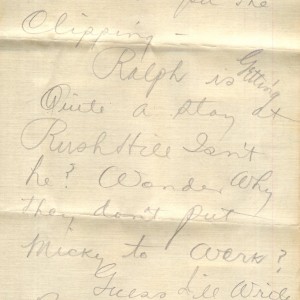 the
Clipping –
Ralph is Getting
Quite a stay at
Rush Hill Isn't
he? Wonder Why
they don't put
Micky to Work?
Guess I'll